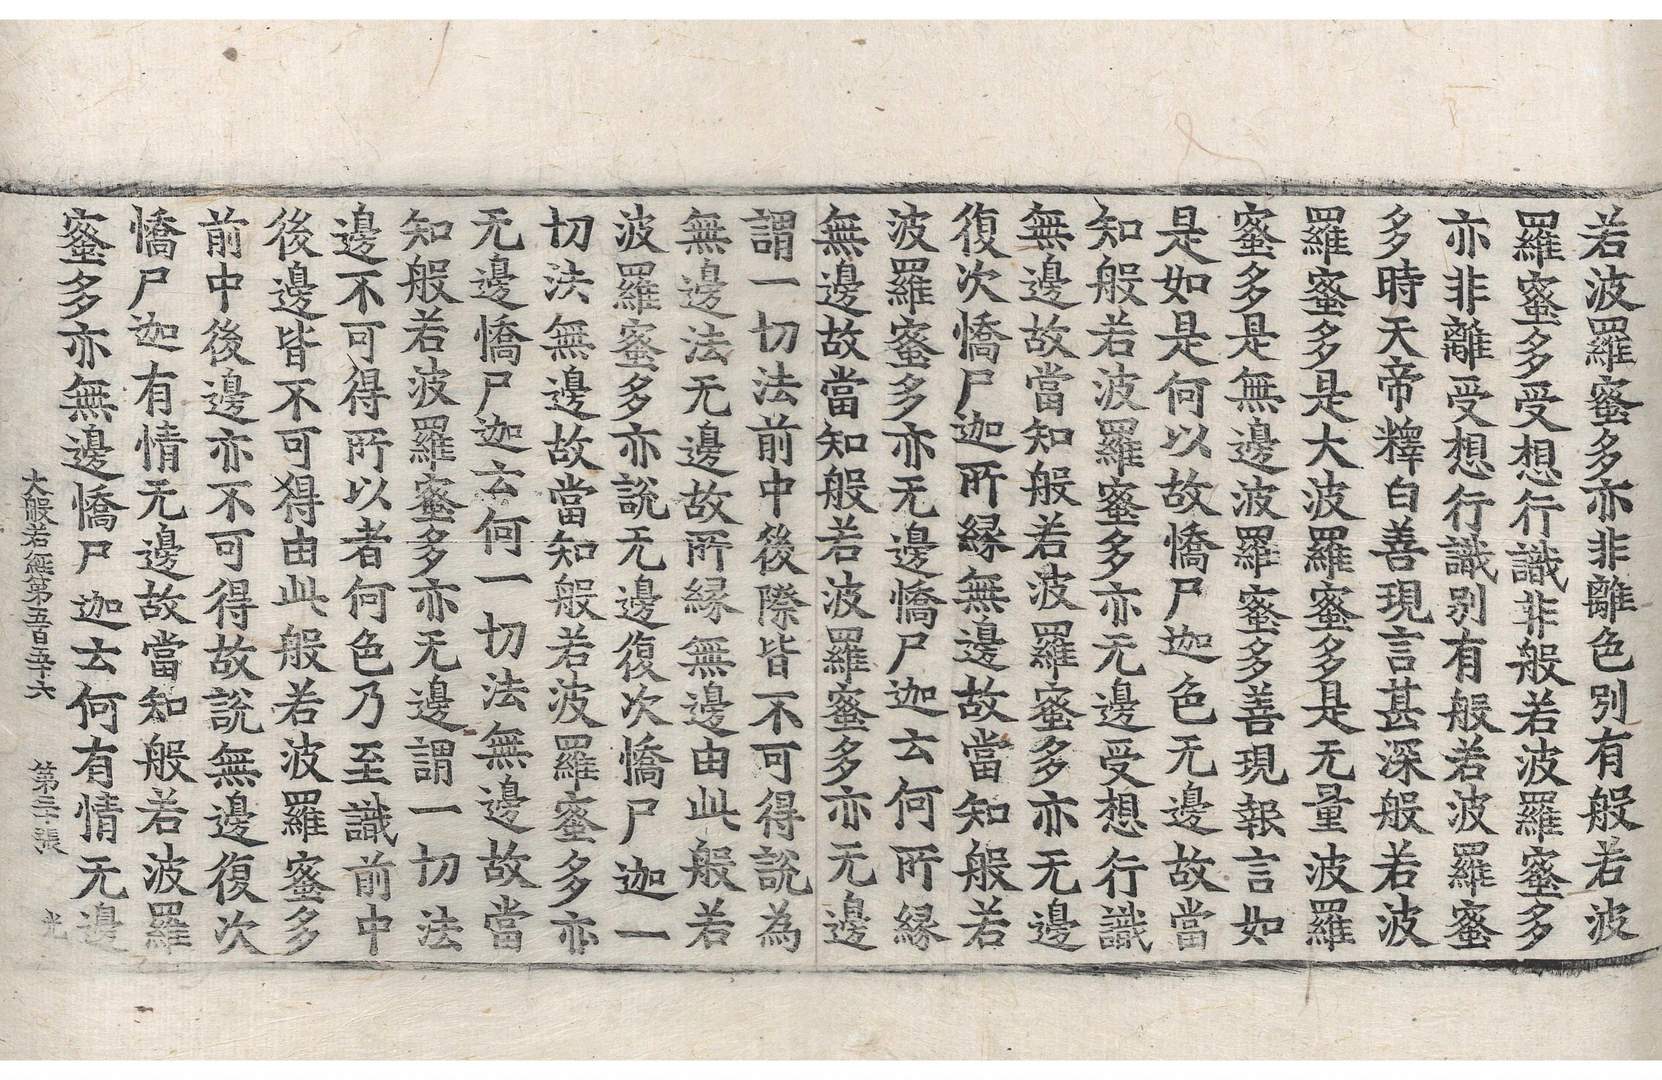 若波羅蜜多亦非離色別有般若波
羅蜜多受想行識非般若波羅蜜多
亦非離受想行識別有般若波羅蜜
多時天帝釋白善現言甚深般若波
羅蜜多是大波羅蜜多是无量波羅
蜜多是無邊波羅蜜多善現報言如
是如是何以故憍尸迦色无邊故當
知般若波羅蜜多亦无邊受想行識
無邊故當知般若波羅蜜多亦无邊
復次憍尸迦所緣無邊故當知般若
波羅蜜多亦无邊憍尸迦云何所緣
無邊故當知般若波羅蜜多亦无邊
謂一切法前中後際皆不可得說為
無邊法无邊故所緣無邊由此般若
波羅蜜多亦說无邊復次憍尸迦一
切法無邊故當知般若波羅蜜多亦
无邊憍尸迦云何一切法無邊故當
知般若波羅蜜多亦无邊謂一切法
邊不可得所以者何色乃至識前中
後邊皆不可得由此般若波羅蜜多
前中後邊亦不可得故說無邊復次
憍尸迦有情无邊故當知般若波羅
蜜多亦無邊憍尸迦云何有情无邊
大般若經第五百五十六 第二十張 光